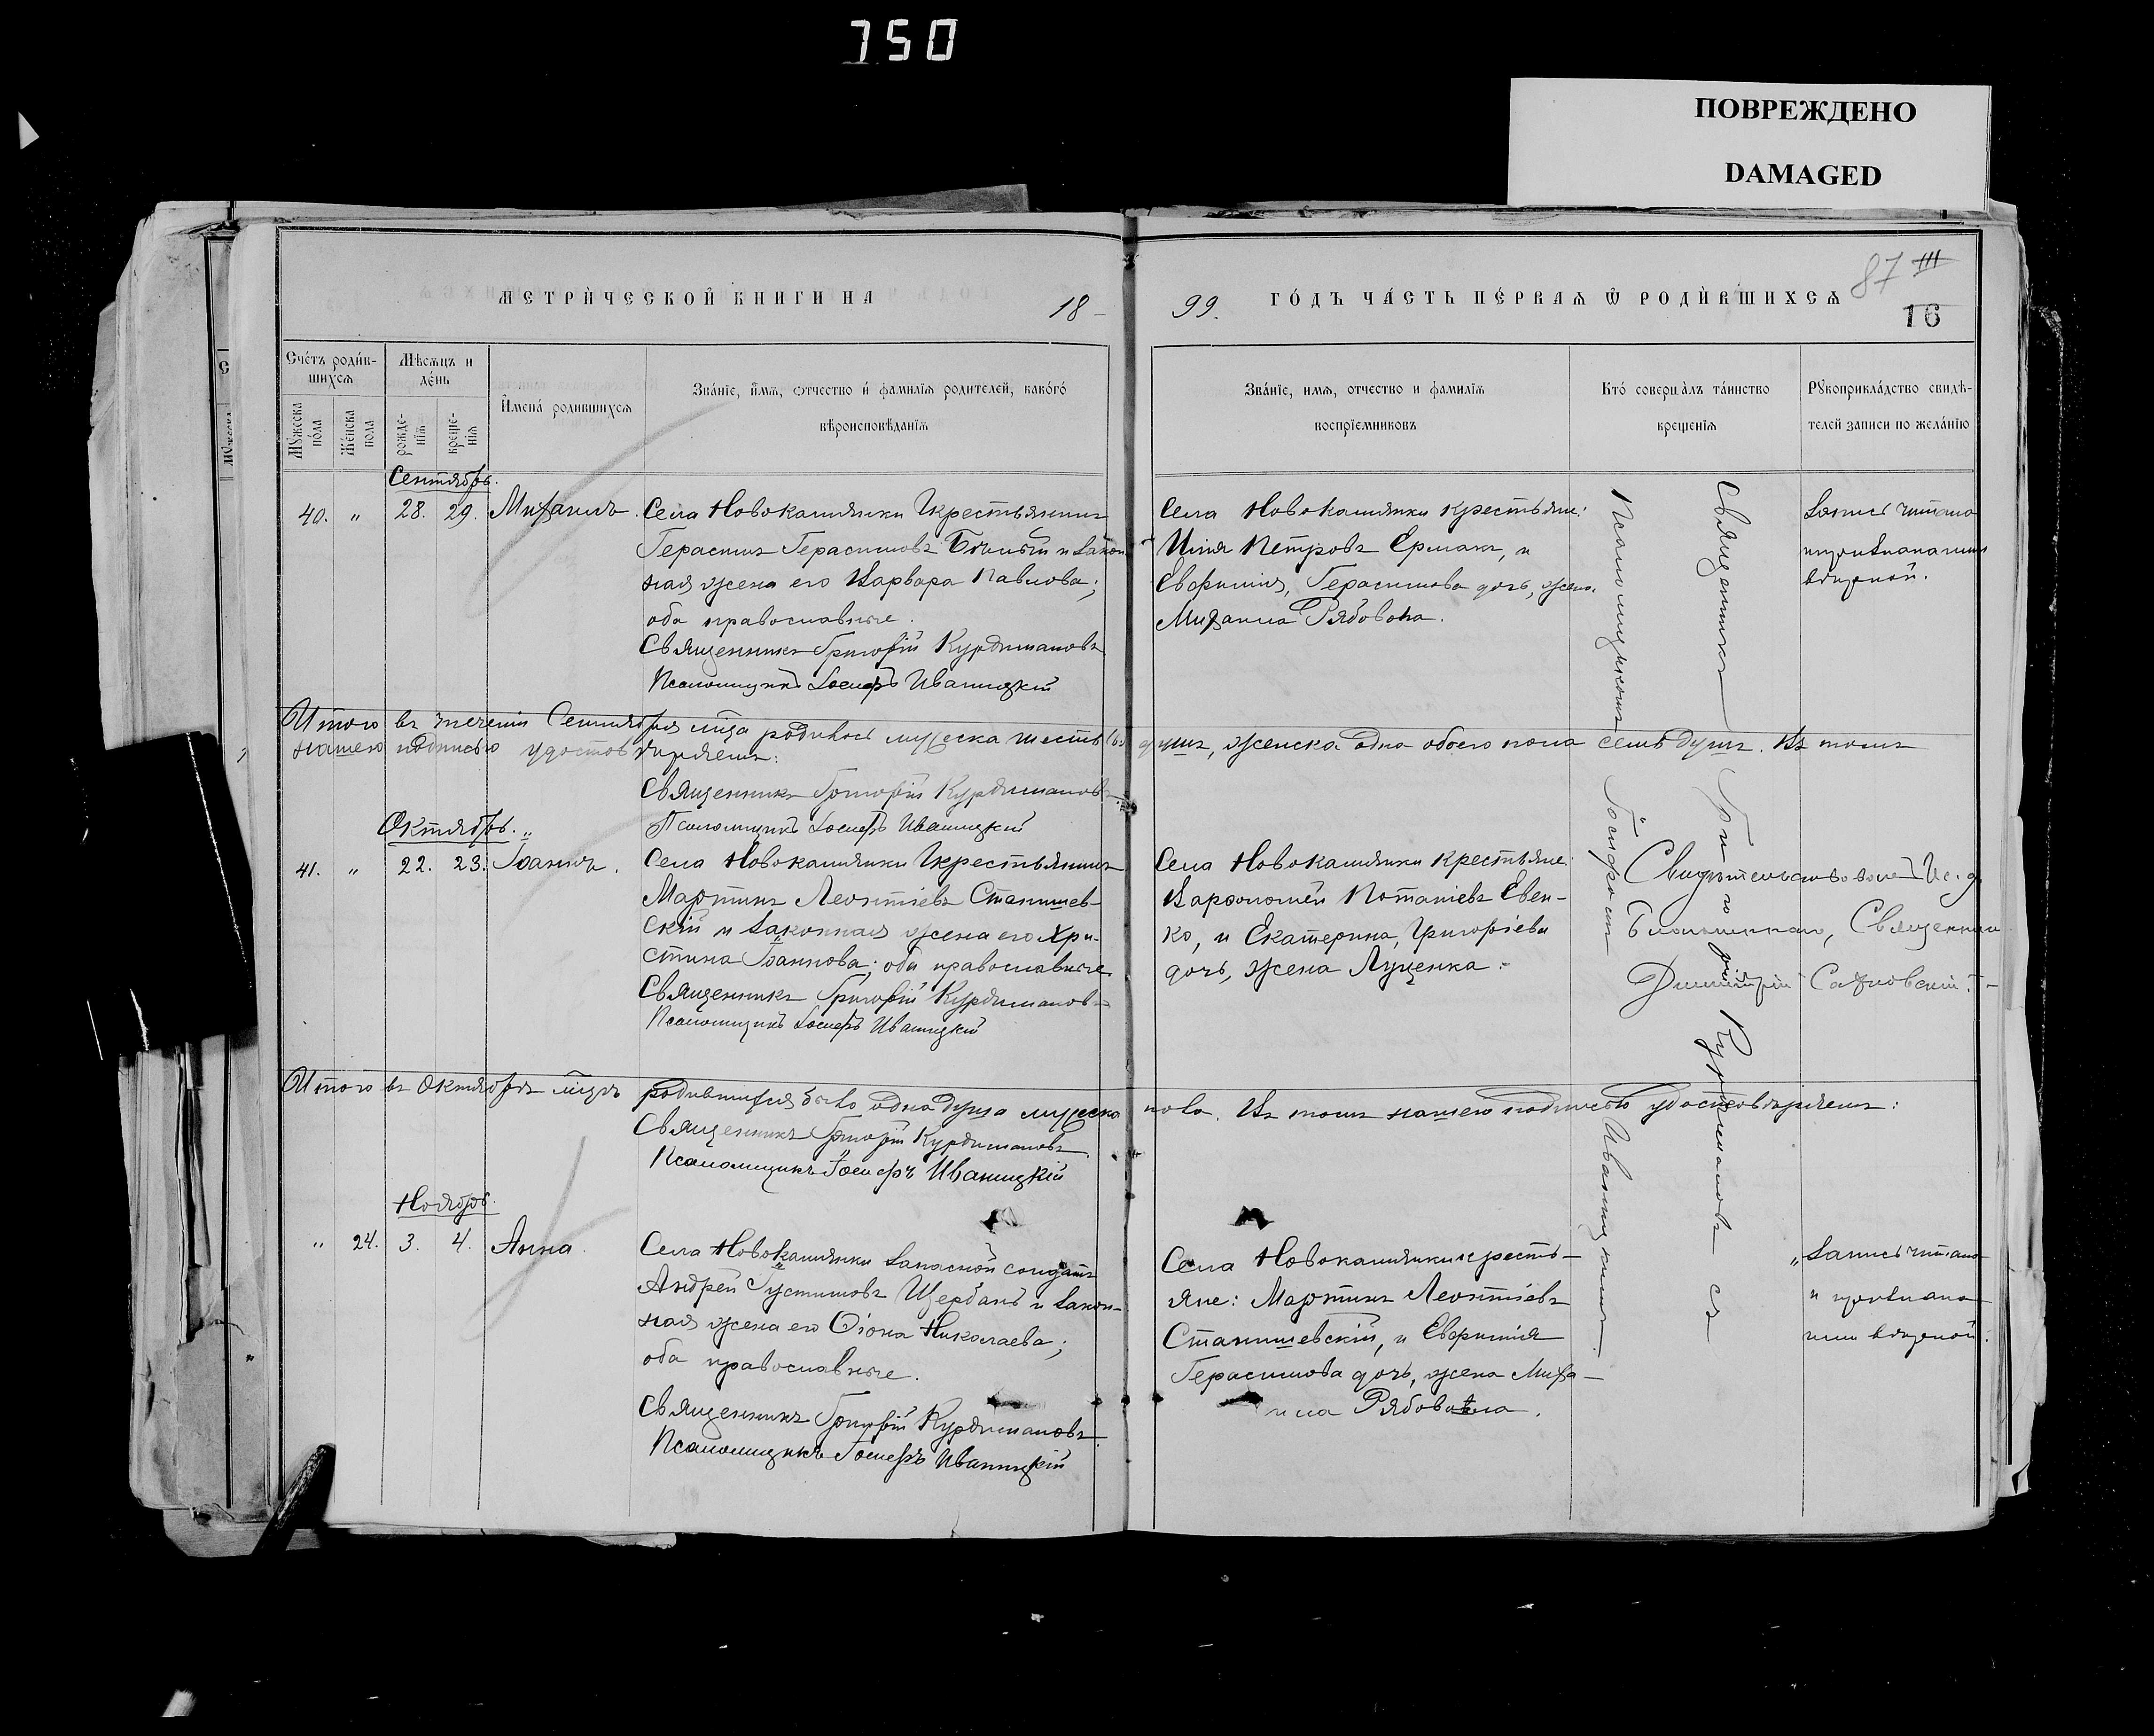 750
ПОВРЕЖДЕНО
DAMAGED
87 III
16
МЕТРИ́ЧЕСКОЙ КНИГИ НА 18
99. ГО́ДЪ ЧА́СТЬ ПЕ́РВАѦ Ѿ РОДИ́ВШИХСѦ
Сче́тъ роди́в-
шихсѧ
Мѣсѧцъ и
де́нь
Мꙋ́жеска
по́ла
Же́нска
пола
рожде-
нїѧ
креще-
нїѧ
И҆мена́ родившихсѧ
Зва́нїе, и҆мѧ, ѻтчество и҆ фамилїѧ родителей, како́гѡ
вѣроисповѣ́данїѧ
Зва́нїе, имѧ, отчество и фамилїѧ
воспрїемниковъ
Кто́ соверша́лъ та́инство
крещенїѧ
Рꙋкоприкла́дство свидѣ-
телей записи по жела́нїю
Сентябрь.
40. „ 28. 29. Михаилъ.
Села Новокаменки Крестьянинъ
Герасимъ Герасимовъ Бѣлый и закон
ная жена его Варвара Павлова;
оба православные.
Священникъ Григорій Курдимановъ
Псаломщикъ Іосифъ Иваницкій
Села Новокаменки крестьяне:
Илія Петровъ Ермакъ, и
Евфимія, Герасимова дочь, жена
Михаила Рябовола.
Запись читана
Итого въ теченіи Сентября мѣсяца родилось мужеска шесть (6) душъ, женска одна обоего пола семь душъ. Въ томъ
нашею подписью удостовѣряемъ:
Священникъ Григорій Курдимановъ
Псаломщикъ Іосифъ Иваницкій
Октябрь.
41. „ 22. 23. Іоаннъ.
Села Новокаменки Крестьянинъ
Мартинъ Леонтіевъ Станишев-
скій и законная жена его Хри-
стина Іоаннова; оба православные
Священникъ Григорій Курдимановъ
Псаломщикъ Іосифъ Иваницкій
Села Новокаменки крестьяне:
Варфоломей Потапіевъ Евен-
ко, и Екатерина, Григоріева
дочь, жена Луценка.
Священникъ Григорій Курдимановъ съ
Псаломщикомъ Іосифомъ Иваницкимъ.
Свидѣтельствовалъ Ис. д.
Благочиннаго, Священникъ
Димитрій
Итого въ Октябрѣ мѣсяцѣ родившихся было одна душа мужеска пола. Въ томъ нашею подписью удостовѣряемъ:
Священникъ Григорій Курдимановъ
Псаломщикъ Іосифъ Иваницкій
Ноябрь.
„ 24. 3. 4. Анна.
Села Новокаменки запасной солдатъ
Андрей Іустиновъ Щербань и закон-
ная жена его Николаева;
оба православные.
Священникъ Григорій Курдимановъ
Псаломщикъ Іосифъ Иваницкій
Села Новокаменки кресть-
яне: Мартинъ Леонтіевъ
Станишевскій, и Евфимія
Герасимова дочь, жена Миха-
ила Рябовола.
„Запись читана